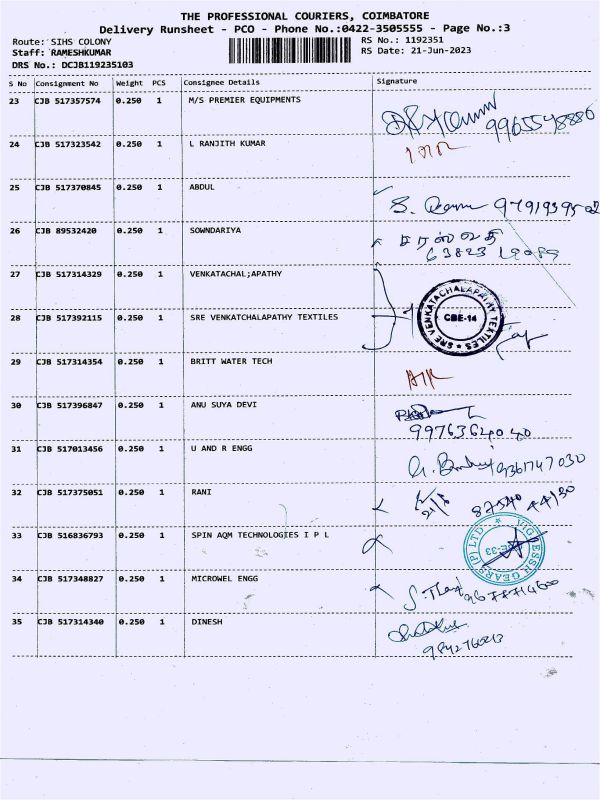 THE PROFESSIONAL COURIERS, COIMBATORE
Delivery Runsheet - PCO - Phone No.:0422-3505555 - Page No.:3
Route: SIHS COLONY RS No.: 1192351
Staff: RAMESHKUMAR RS Date: 21-Jun-2023
DRS No.: DCJB119235103
S No Consignment No Weight PCS Consignee Details Signature
23 CJB 517357574 0.250 1 M/S PREMIER EQUIPMENTS
9965548886
24 CJB 517323542 0.250 1 L RANJITH KUMAR
25 CJB 517370845 0.250 1 ABDUL
S.
26 CJB 89532420 0.250 1 SOWNDARIYA
சரஸ்வதி
27 CJB 517314329 0.250 1 VENKATACHAL;APATHY
28 CJB 517392115 0.250 1 SRE VENKATCHALAPATHY TEXTILES
SRE VENKATACHALAPATHY TEXTILES ★ CBE-14
29 CJB 517314354 0.250 1 BRITT WATER TECH
30 CJB 517396847 0.250 1 ANU SUYA DEVI
9976364040
31 CJB 517013456 0.250 1 U AND R ENGG
9361747030
32 CJB 517375051 0.250 1 RANI
87540 44130
33 CJB 516836793 0.250 1 SPIN AQM TECHNOLOGIES I P L
34 CJB 517348827 0.250 1 MICROWEL ENGG
35 CJB 517314340 0.250 1 DINESH